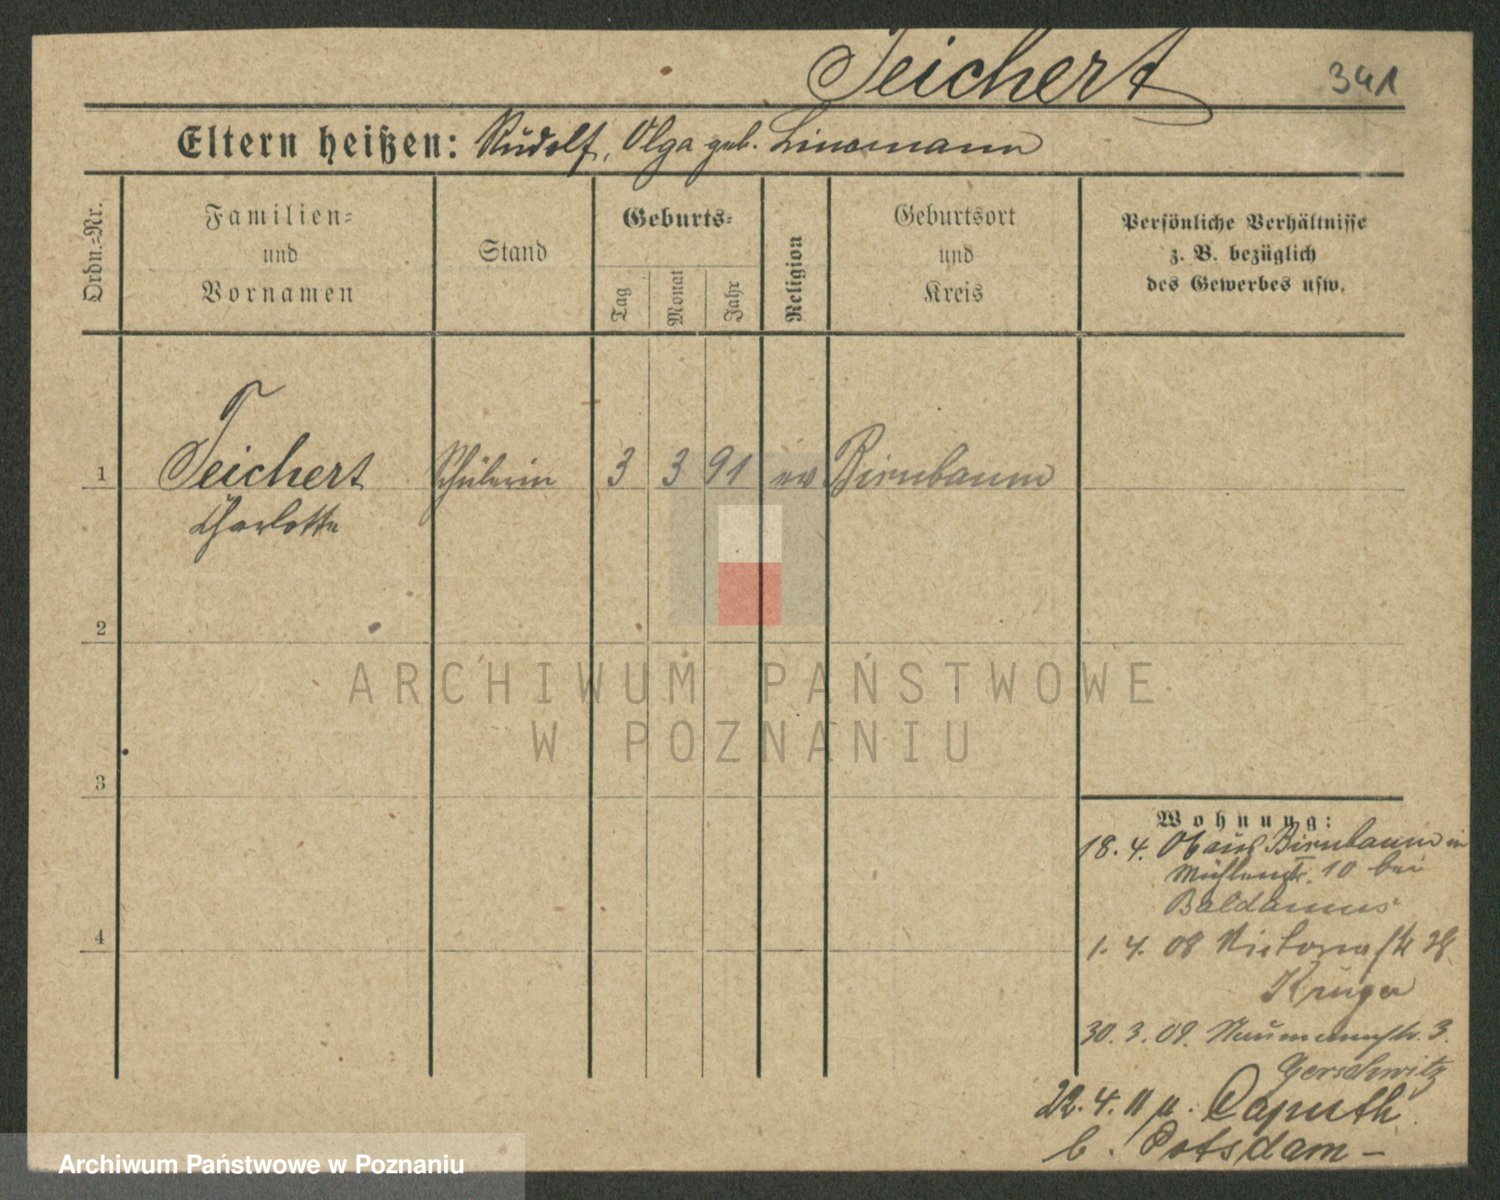 Teichert
341
Eltern heißen: Rudolf, Olga geb.
Ordn.-Nr.
Familien-
und
Vornamen
Stand
Geburts-
Tag
Monat
Jahr
Religion
Geburtsort
und
Kreis
Persönliche Verhältnisse
z. B. bezüglich
des Gewerbes usw.
1
Teichert
Charlotte
Schülerin
3
3
91
ev
Birnbaum
2
3
4
Wohnung:
18. 4. 06 aus Birnbaum in
Mühlenstr. 10 bei
Baldamus
1. 4. 08 Victoriastr
Krüger
30. 3. 09. Naumannstr. 3.
Gerschwitz
22. 4. 11 n. Caputh
b. Potsdam –
ARCHIWUM PAŃSTWOWE
W POZNANIU
Archiwum Państwowe w Poznaniu